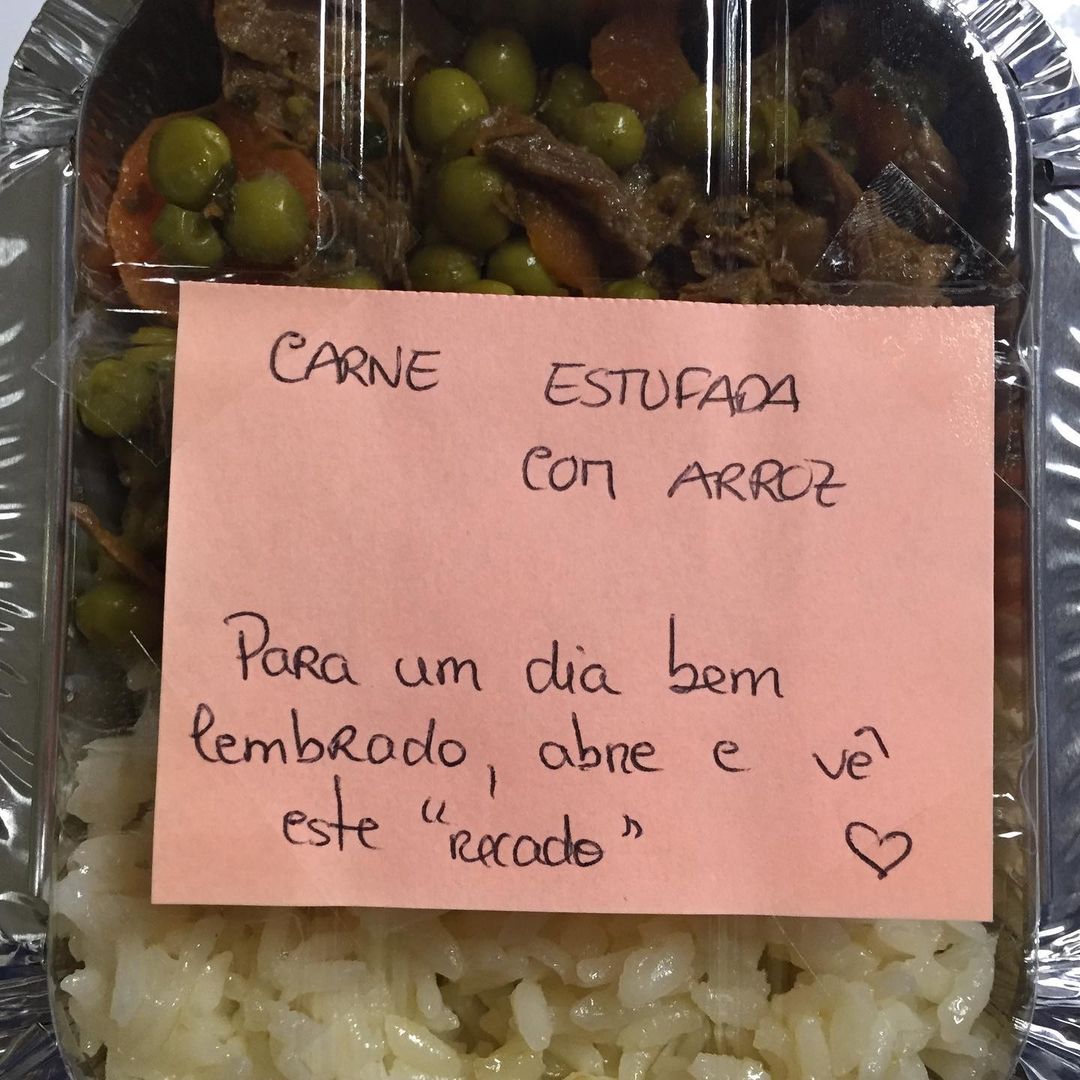 CARNE ESTUFADA
COM ARROZ
Para um dia bem
lembrado, abre e vê
este "recado"